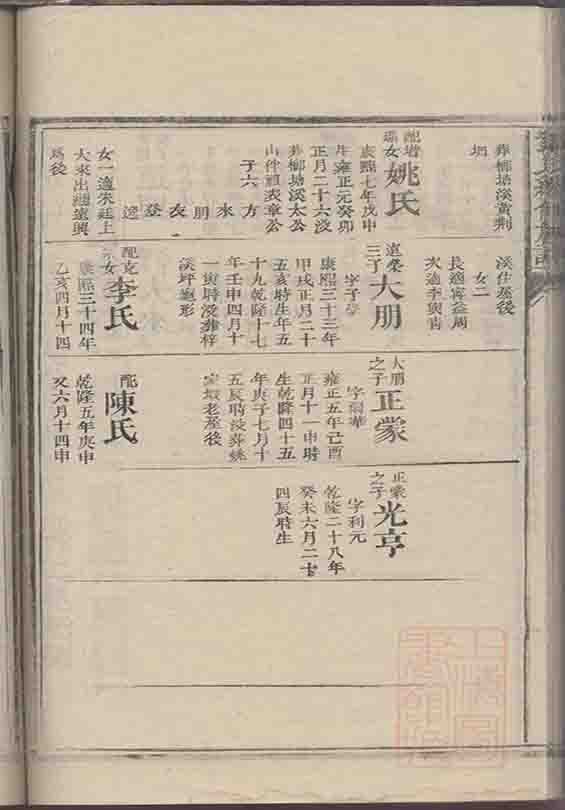 葬櫛塘溪黃荆
配
女
姚氏
康熙七年戊申
生雍正元癸卯
正月二十六没
葬櫛塘溪太公
山
子六
方 來 朋 友 登 逵
女一適朱廷上
大來出繼遠興
爲後
溪仕屋後
女二
長適
次適李
三子
大朋
字子
康熙三十三年
甲戌正月二十
五亥時生年五
十九乾隆十七
年壬申四月十
一寅時没葬梓
溪坪
配
女
李氏
康熙三十四年
乙亥四月十四
大朋
之子
正蒙
字
雍正五年己酉
正月十一申時
生乾隆四十五
年庚子七月十
五辰時没葬姚
家塅老屋後
配
陳氏
乾隆五年庚申
又六月十四申
正蒙
之子
光亨
字利元
乾隆二十八年
癸未六月二十
四辰時生